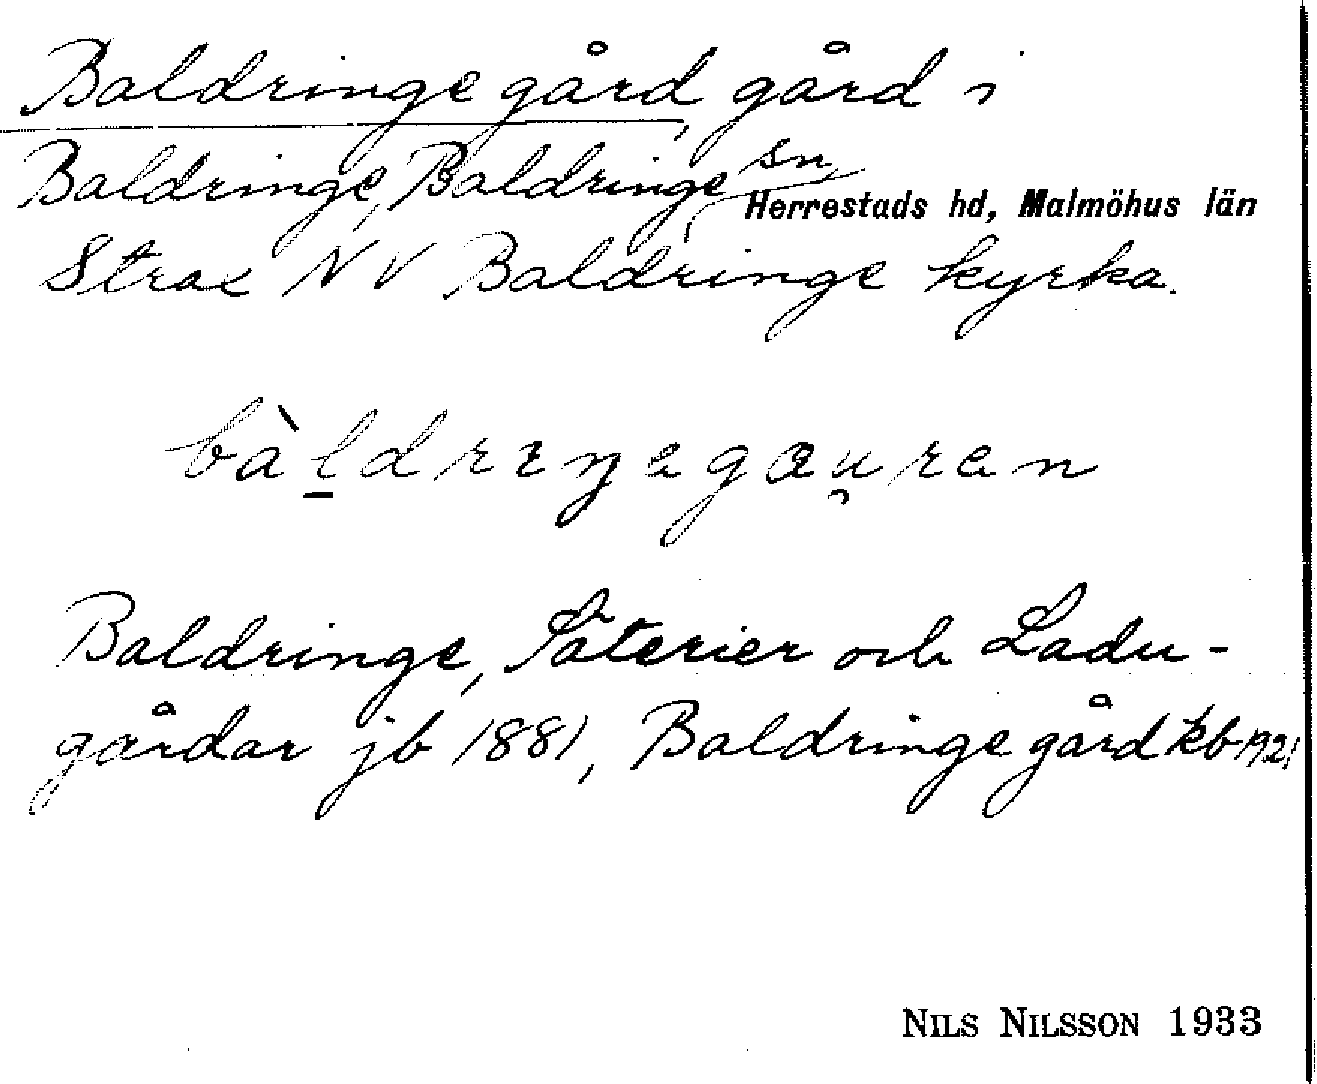 Baldringe gård, gård i
Baldringe, Baldringe sn,
Herrestads hd, Malmöhus län
Strax NV Baldringe kyrka.
bàl̠drɪŋegɑu̯ren
Baldringe, Säterier och Ladu-
gårdar jb 1881, Baldringe gård kb 1921
NILS NILSSON 1933